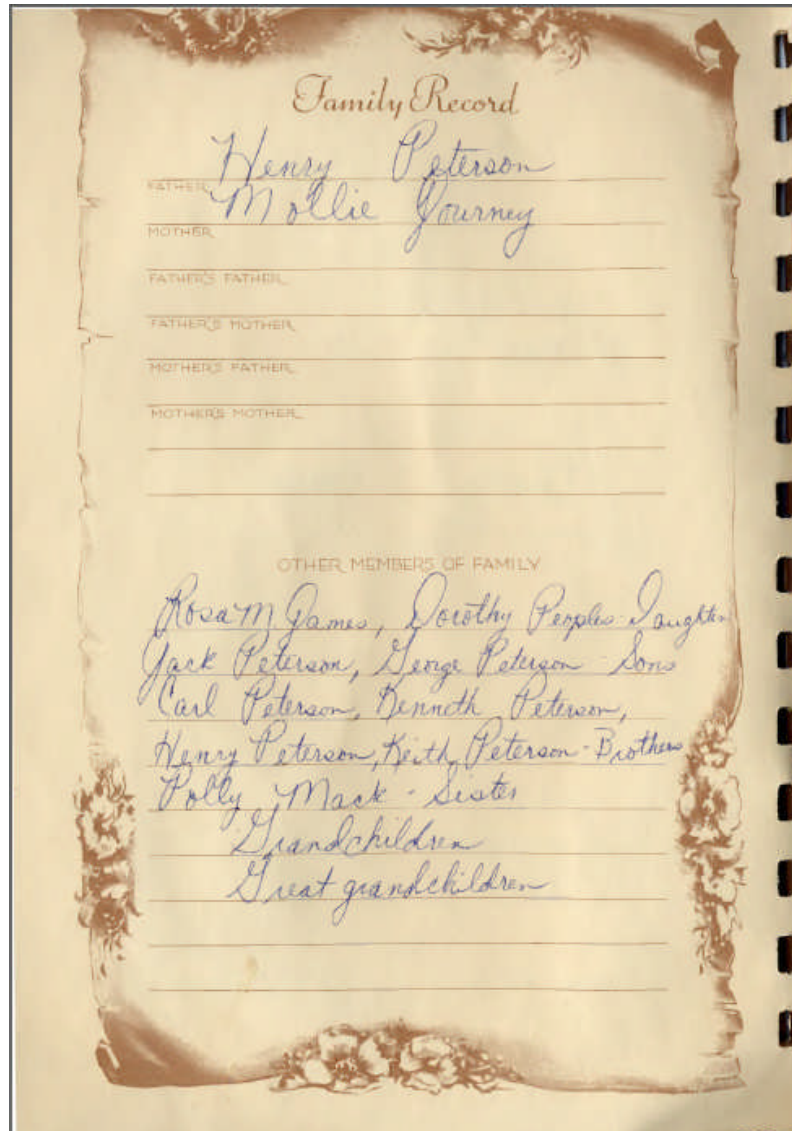 Family Record
Henry Peterson
FATHER
Mollie Journey
MOTHER
FATHER'S FATHER
FATHER'S MOTHER
MOTHER'S FATHER
MOTHER'S MOTHER
OTHER MEMBERS OF FAMILY
Rosa M James, Dorothy Peoples-Daughter
Jack Peterson, George Peterson - Sons
Carl Peterson, Kenneth Peterson,
Henry Peterson, Keith Peterson-Brothers
Polly Mack - Sister
Grandchildren
Great grandchildren